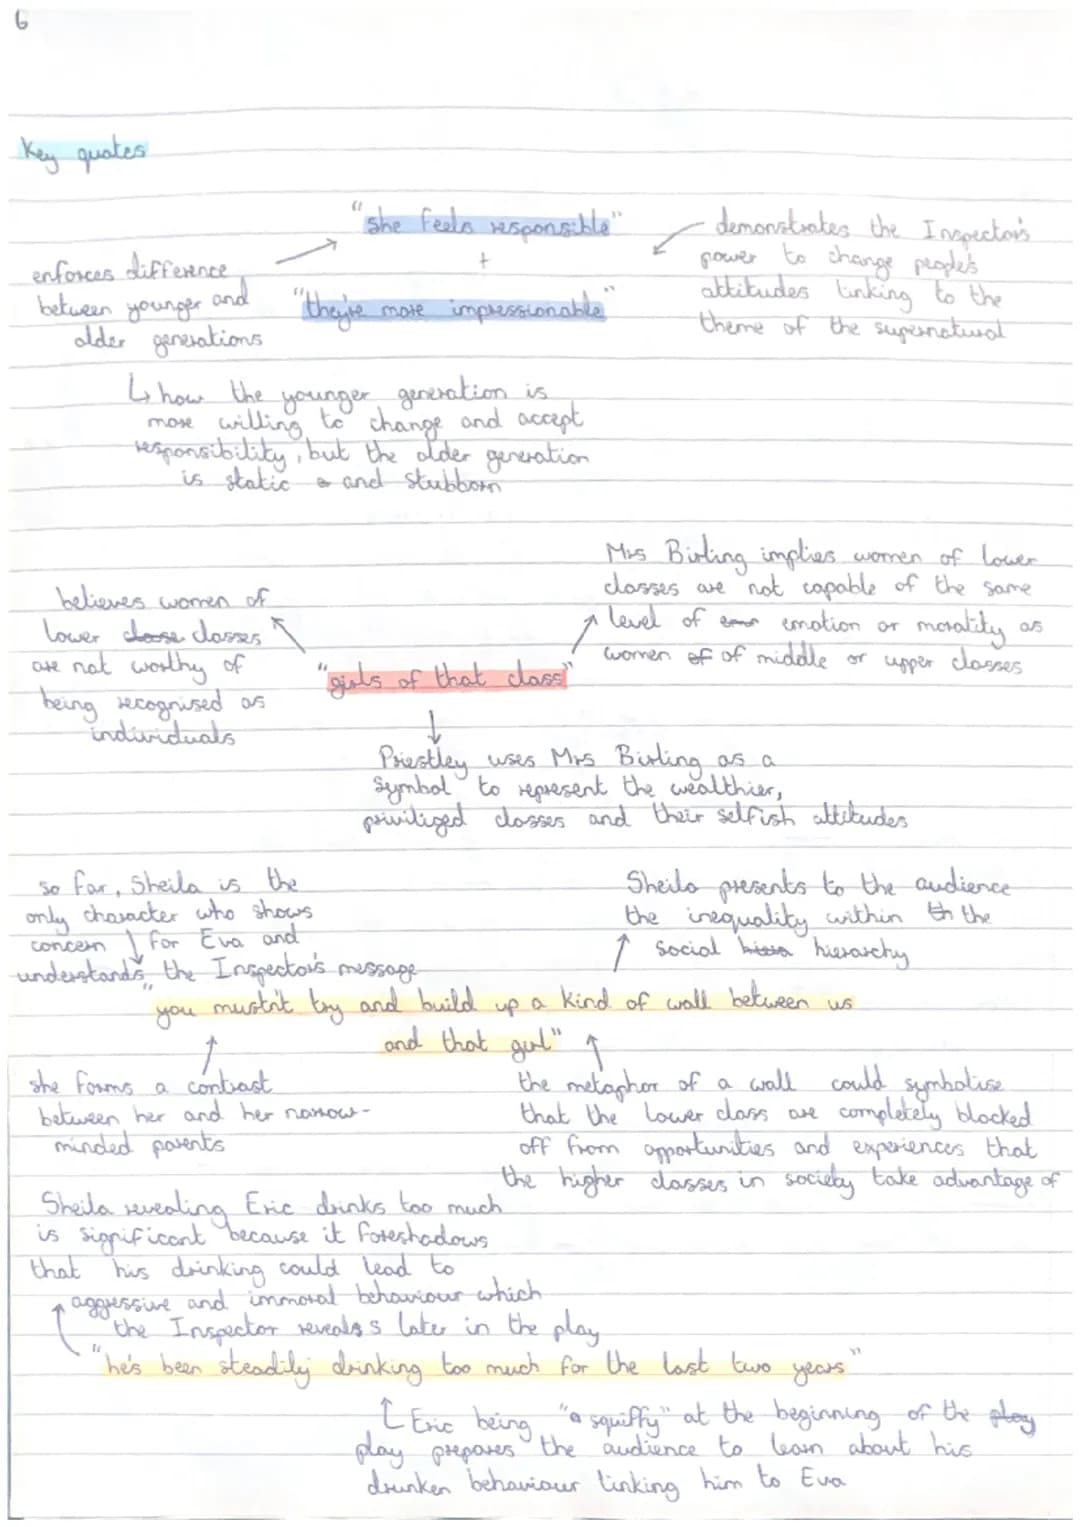 6
Key quotes
"she feels responsible"
+
"they're more impressionable"
enforces difference
between younger and
older generations
demonstrates the Inspector's
power to change people's
attitudes linking to the
theme of the supernatural
↳ how the younger generation is
more willing to change and accept
responsibility, but the older generation
is static and stubborn
believes women of
lower classes
are not worthy of
being recognised as
individuals
Mrs Birling implies women of lower
classes are not capable of the same
level of emotion or morality as
women of middle or upper classes
"girls of that class"
Priestley uses Mrs Birling as a
symbol to represent the wealthier,
priviliged classes and their selfish attitudes
so far, Sheila is the
only character who shows
concern for Eva and
understands the Inspector's message
Sheila presents to the audience
the inequality within the
social hierarchy
"you mustn't try and build up a kind of wall between us
and that girl"
she forms a contrast
between her and her narrow-
minded parents
the metaphor of a wall could symbolise
that the lower class are completely blocked
off from opportunities and experiences that
the higher classes in society take advantage of
Sheila revealing Eric drinks too much
is significant because it foreshadows
that his drinking could lead to
aggressive and immoral behaviour which
the Inspector reveals later in the play
"he's been steadily drinking too much for the last two years"
Eric being "a squiffy" at the beginning of the play
play prepares the audience to learn about his
drunken behaviour linking him to Eva